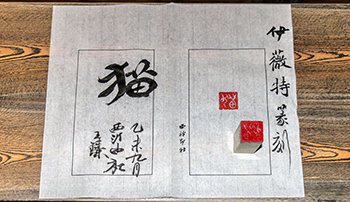 伊薇特篆刻
猫
西泠印社
猫
乙未九月
西泠印社